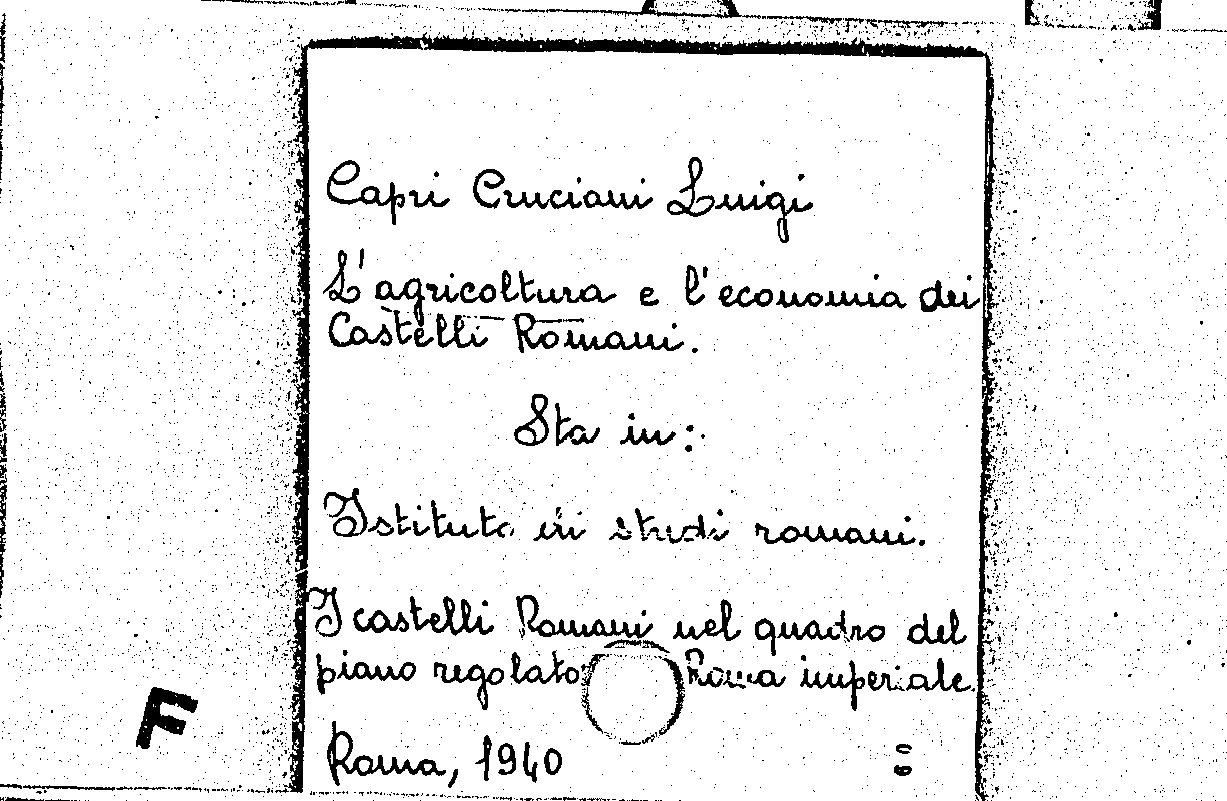 Capri Cruciani Luigi
L'agricoltura e l'economia dei
Castelli Romani.
Sta in:
Istituto di studi romani.
I castelli Romani nel quadro del
piano regolato Roma imperiale
Roma, 1940
F